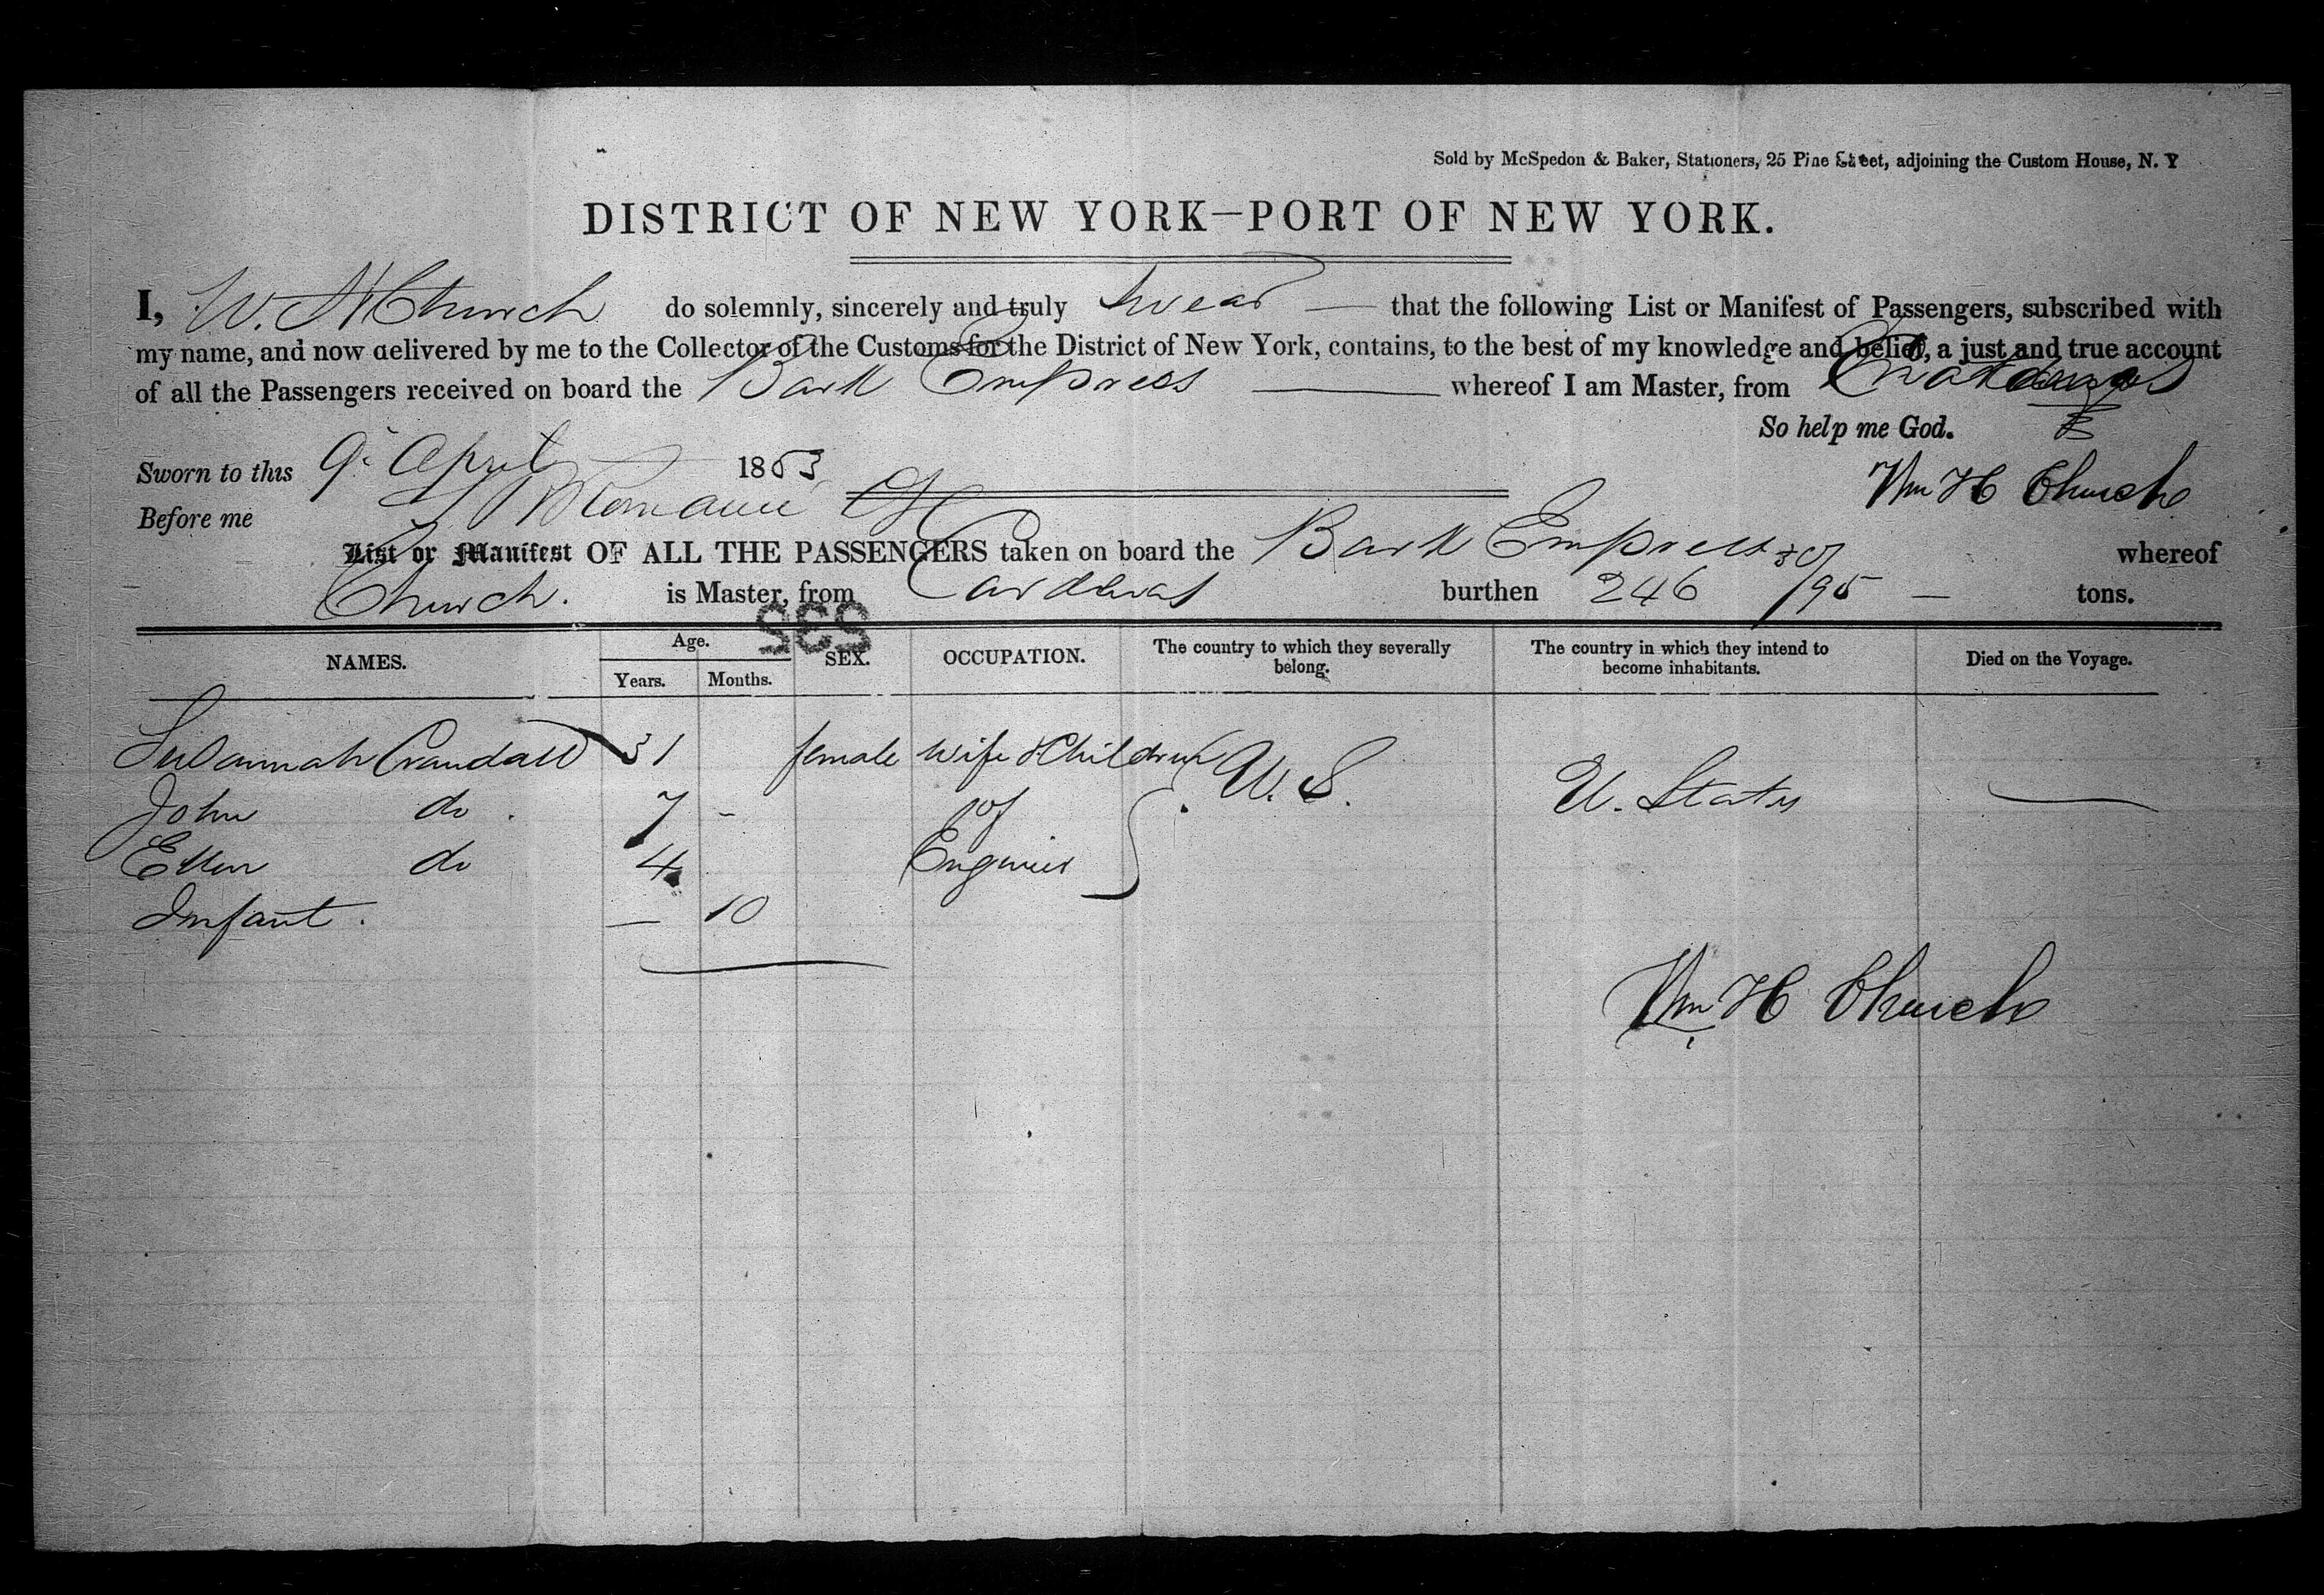 Sold by McSpedon & Baker, Stationers, 25 Pine Street, adjoining the Custom House, N. Y
DISTRICT OF NEW YORK—PORT OF NEW YORK.
I, W. H Church do solemnly, sincerely and truly swear — that the following List or Manifest of Passengers, subscribed with
my name, and now delivered by me to the Collector of the Customs for the District of New York, contains, to the best of my knowledge and belief, a just and true account
of all the Passengers received on board the Bark Empress — whereof I am Master, from
So help me God.
Sworn to this 9th April 1853
Wm H Church
Before me
List or Manifest OF ALL THE PASSENGERS taken on board the Bark Empress whereof
Church. is Master, from Cardenas burthen 246 /95 — tons.
532
NAMES. Age. Years. Months. SEX. OCCUPATION. The country to which they severally belong. The country in which they intend to become inhabitants. Died on the Voyage.
Susannah Crandall 31 female Wife & Children U. S. U. States —
John do . 7 - of
Ellen do 4 Engineer
Infant . — 10
Wm H Church